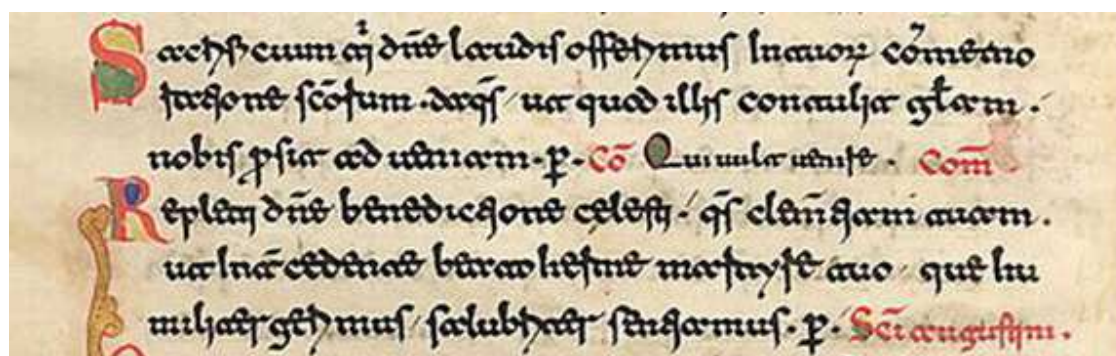 Sacrificium tⁱ dn̄e laudis offerimus Intuoꝝ com̄emo
ratione sc̄orum · daqs̄ / ut quod illis contulit gl̄am ·
nobis ꝓsit ad ueniam · p̱ · Cō Qui uult uenire · Com̄
Repleti dn̄e benedictione celesti / qs̄ clem̄tiam tuam ·
ut Int̄cedente beato hermē martyre tuo / que hu
militer gerimus / salubriter sentiamus · p̱ · Sc̄i augustini ·